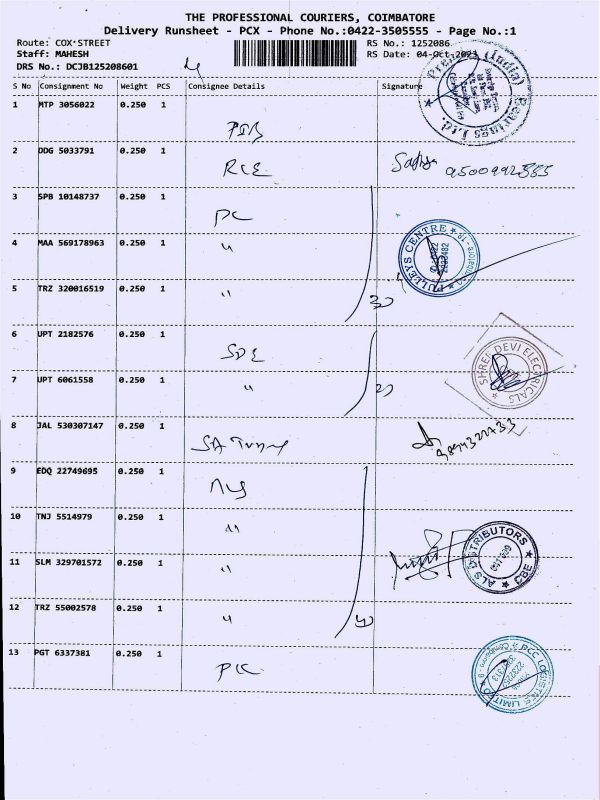 THE PROFESSIONAL COURIERS, COIMBATORE
Delivery Runsheet - PCX - Phone No.:0422-3505555 - Page No.:1
Route: COX STREET RS No.: 1252086
Staff: MAHESH RS Date: 04-Oct-2021
DRS No.: DCJB125208601
S No Consignment No Weight PCS Consignee Details Signature
1 MTP 3056022 0.250 1
(India) Bearings Ltd.
2 DDG 5033791 0.250 1 RCE
3 SPB 10148737 0.250 1 PC
4 MAA 569178963 0.250 1 "
PULLEYS CENTRE
5 TRZ 320016519 0.250 1 "
6 UPT 2182576 0.250 1 SDE
7 UPT 6061558 0.250 1 "
SHREE DEVI ELECTRICALS
8 JAL 530307147 0.250 1
9 EDQ 22749695 0.250 1
10 TNJ 5514979 0.250 1 "
11 SLM 329701572 0.250 1 "
ALS DISTRIBUTORS CBE
12 TRZ 55002578 0.250 1 "
13 PGT 6337381 0.250 1
PCC LOGISTICS LIMITED